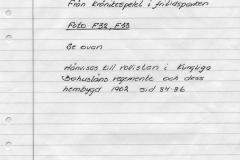 Från krönikespelet i fritidsparken
Foto F32, F33
Se ovan
Hänvisas till rollistan i Kungliga
Bohusläns regemente och dess
hembygd 1962 sid 84-86